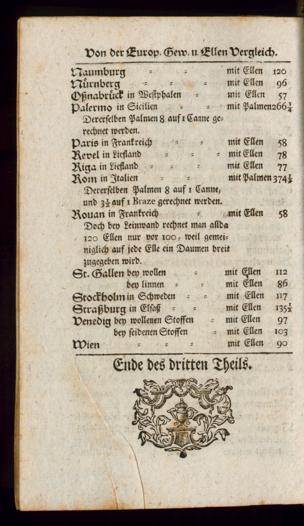 Von der Europ. Gew. u. Ellen Vergleich.
Naumburg - - mit Ellen 120
Nürnberg - - mit Ellen 96
Oßnabrück in Westphalen - mit Ellen 57
Palermo in Sicilien - - mit Palmen 266¾
Dererselben Palmen 8 auf 1 Canne ge-
rechnet werden.
Paris in Frankreich - - mit Ellen 58
Revel in Liefland - - mit Ellen 78
Riga in Liefland - - mit Ellen 77
Rom in Italien - - mit Palmen 374½
Dererselben Palmen 8 auf 1 Canne,
und 3½ auf 1 Braze gerechnet werden.
Rouan in Frankreich - mit Ellen 58
Doch bey Leinwand rechnet man allda
120 Ellen nur vor 100, weil gemei-
niglich auf jede Elle ein Daumen breit
zugegeben wird.
St. Gallen bey wollen - mit Ellen 112
bey linnen - - mit Ellen 86
Stockholm in Schweden - - mit Ellen 117
Straßburg in Elsaß - - mit Ellen 135½
Venedig bey wollenen Stoffen - mit Ellen 97
bey seidenen Stoffen - mit Ellen 103
Wien - - - mit Ellen 90
Ende des dritten Theils.